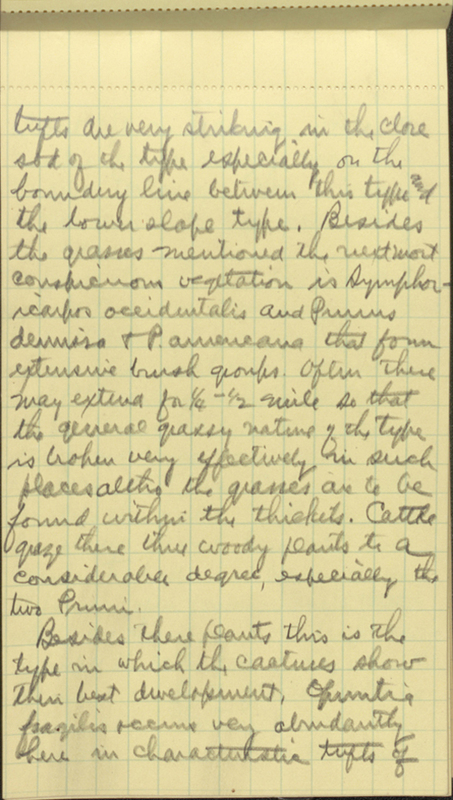 tufts are very striking in the close
sod of the type especially on the
boundary line between this type and
the lower slope type. Besides
the grasses mentioned the next most
conspicuous vegetation is Symphor-
icarpos occidentalis and Prunus
demissa & P. americana that form
extensive brush groups. Often these
may extend for ¼ - ½ mile so that
the general grassy nature of the type
is broken very effectively in such
places altho the grasses are to be
found within the thickets. Cattle
graze there these woody plants to a
considerable degree, especially the
two Pruni.
Besides these plants this is the
type in which the cactuses show
their best development. Opuntia
fragilis occurs very abundantly
here in characteristic tufts of